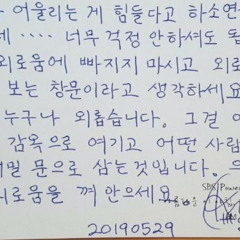 어울리는 게 힘들다고 하소연
데 .... 너무 걱정 안하셔도 됩
외로움에 빠지지 마시고 외로
보는 창문이라고 생각하세요
누구나 외롭습니다. 그걸 어
감옥으로 여기고 어떤 사람
밀 문으로 삼는것입니다.
외로움을 껴 안으세요
20190529